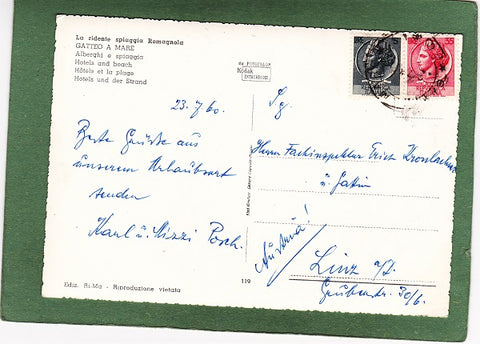 La ridente spiaggia Romagnola
GATTEO A MARE
Alberghi e spiaggia
Hotels and beach
Hôtels et la plage
Hotels und der Strand
Kodak
35
23.7.60.
Beste Grüsse aus
unserem Urlaubsort
senden
Karl u. Mizzi Posch.
Sg.
Herrn Fachinspektor Erich
u. Gattin
Austria!
Linz a/D.
Gruberstr. 30/6.
Ediz. - Riproduzione vietata
119